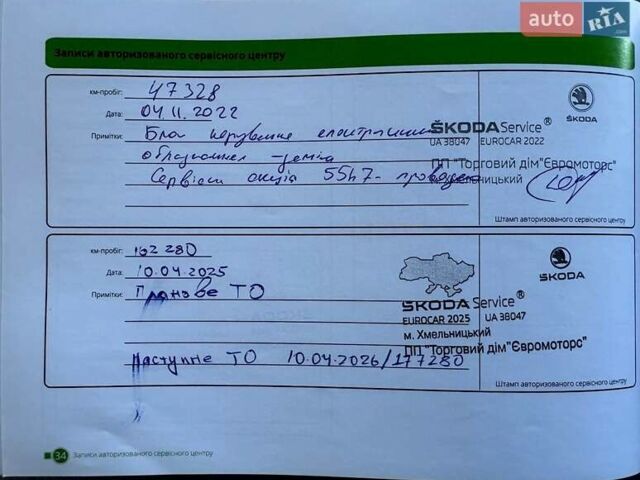 auto RIA .com
Записи авторизованого сервісного центру
км-пробіг: 47328
Дата: 04.11.2022
Примітки: Блок керування електричним
обладнанням - заміна
Сервісна акція 55H7 - проведена
ŠKODA Service®
UA 38047 EUROCAR 2022
ПП "Торговий дім "Євромоторс"
м. Хмельницький
ŠKODA
Штамп авторизованого сервісного центру
км-пробіг: 162 280
Дата: 10.04.2025
Примітки: Планове ТО
Наступне ТО 10.04.2026/177280
ŠKODA Service®
EUROCAR 2025 UA 38047
м. Хмельницький
ПП "Торговий дім "Євромоторс"
ŠKODA
Штамп авторизованого сервісного центру
34 Записи авторизованого сервісного центру